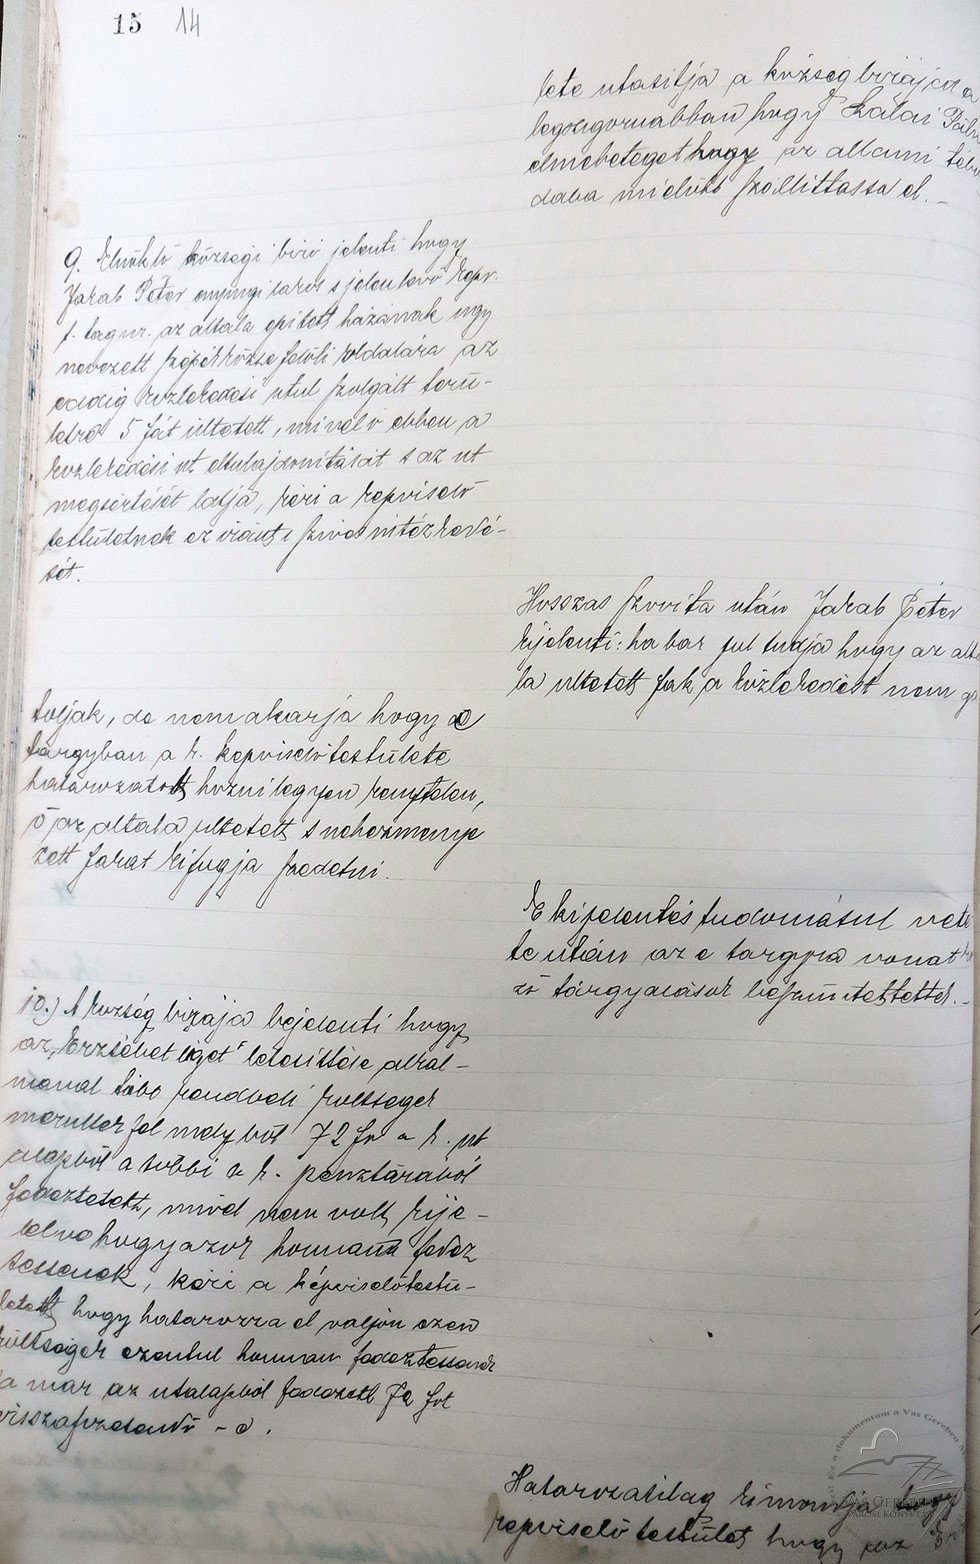 15 14
lete utasitja a község biráját a
legszigorúabban hogy Kalai
elmebeteget hogy az allami
daba mielőbb szóllittassa el. –
9. Elnöklő községi biró jelenti hogy
Jakab Péter enyingi lakos s jelenlevő kepv.
t. tag ur. az általa épitett házának ugy
nevezett felőli oldalára az
eddig közlekedési utul szolgált terü-
letre 5 fát ültetett, mivel ő ebben a
közlekedési ut eltulajdonitását s az ut
megsértését latja, kéri a kepviselő
testületnek ez iránti szives intézkedé-
sét.
Hosszas szóvita után Jakab Péter
kijelenti: ha bar jul tudja hogy az álta
la ültetett fák a közlekedést nem
tolják, de nem akarja hogy e
tárgyban a k. kepviselő testülete
határozatott hozni legyen kenytelen,
ő az általa ültetett s nehezmenye
zett fakat ki fogja szedetni.
E kijelentés tudomásul véte
te után az e targyra vonatko
zó tárgyalások befejeztettek. –
10.) A község birája bejelenti hogy
az „Erzsébet liget" letesitése alkal-
mával több rendbeli költségek
merültek fel melyből 72 frt a k. ut
alapból a többi a k. penztárából
fedeztetett, mivel nem volt kije
lelve hogy azok honnan fedez
tessenek, kéri a képviselőtestü-
letett hogy határozza el valjon ezen
költségek ezentul honnan fedeztessenek
s a mar az utalapból fedezett 72 frt
visszafizetendő – e.
Határozatilag kimondja hogy
kepviselő testület hogy az Er